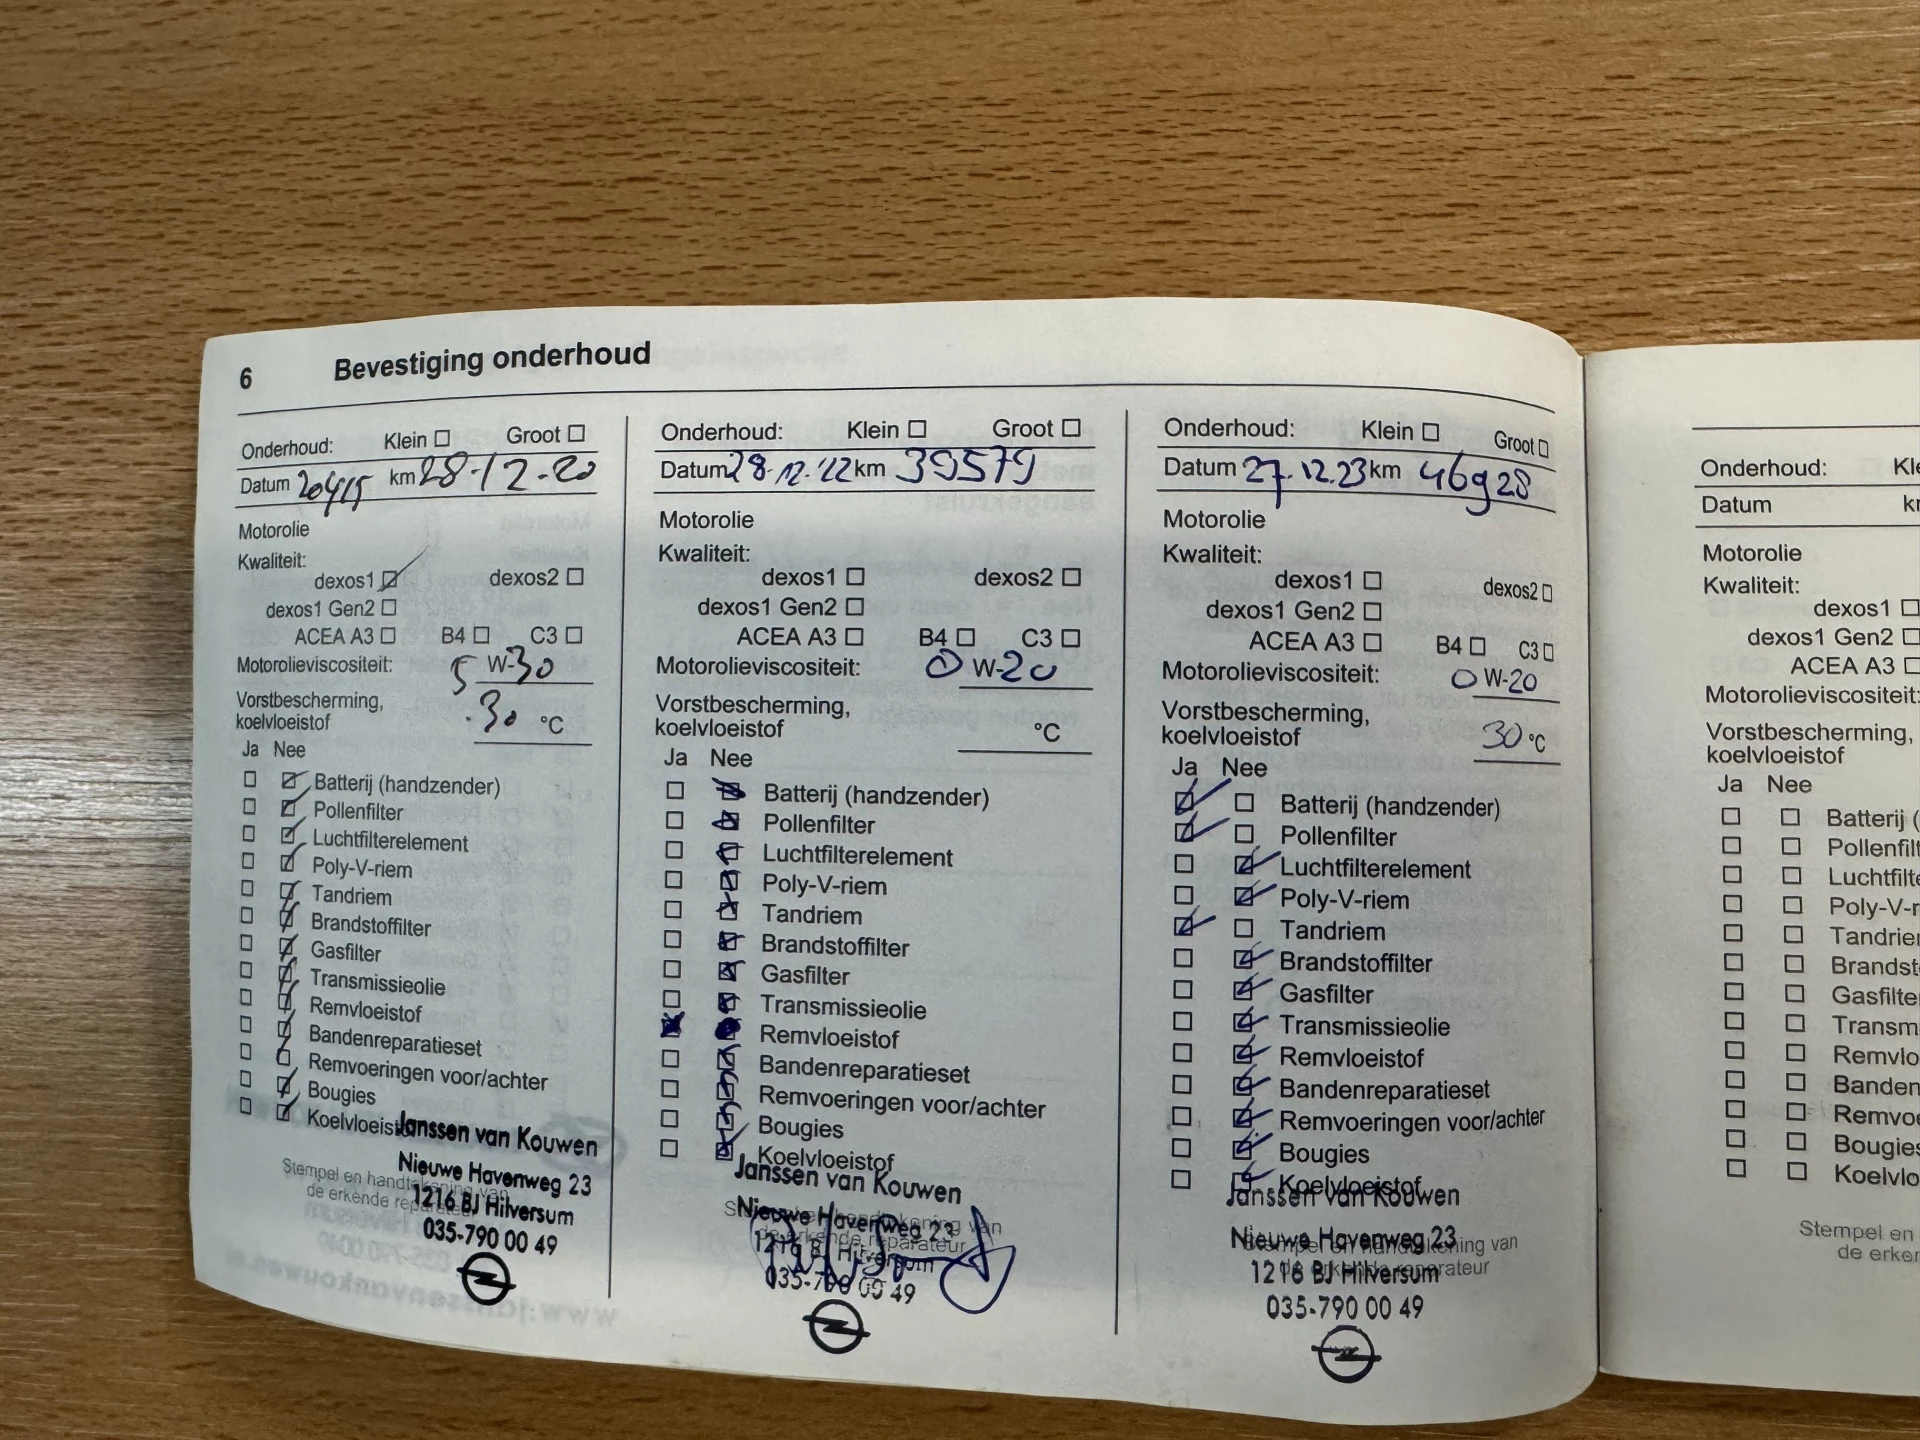 6 Bevestiging onderhoud
Onderhoud: Klein Groot
Datum 20415 km 28-12-20
Motorolie
Kwaliteit:
dexos1 dexos2
dexos1 Gen2
ACEA A3 B4 C3
Motorolieviscositeit: 5 W-30
Vorstbescherming,
koelvloeistof -30 °C
Ja Nee
Batterij (handzender)
Pollenfilter
Luchtfilterelement
Poly-V-riem
Tandriem
Brandstoffilter
Gasfilter
Transmissieolie
Remvloeistof
Bandenreparatieset
Remvoeringen voor/achter
Bougies
Koelvloeistof
Janssen van Kouwen
Nieuwe Havenweg 23
Stempel en handtekening van
de erkende reparateur
1216 BJ Hilversum
035-790 00 49
Onderhoud: Klein Groot
Datum 28-12-'22 km 39579
Motorolie
Kwaliteit:
dexos1 dexos2
dexos1 Gen2
ACEA A3 B4 C3
Motorolieviscositeit: 0 W-20
Vorstbescherming,
koelvloeistof °C
Ja Nee
Batterij (handzender)
Pollenfilter
Luchtfilterelement
Poly-V-riem
Tandriem
Brandstoffilter
Gasfilter
Transmissieolie
Remvloeistof
Bandenreparatieset
Remvoeringen voor/achter
Bougies
Koelvloeistof
Janssen van Kouwen
Stempel en handtekening van
Nieuwe Havenweg 23
de erkende reparateur
1216 BJ Hilversum
035-790 00 49
Onderhoud: Klein Groot
Datum 27.12.23 km 46928
Motorolie
Kwaliteit:
dexos1 dexos2
dexos1 Gen2
ACEA A3 B4 C3
Motorolieviscositeit: 0 W-20
Vorstbescherming,
koelvloeistof 30 °C
Ja Nee
Batterij (handzender)
Pollenfilter
Luchtfilterelement
Poly-V-riem
Tandriem
Brandstoffilter
Gasfilter
Transmissieolie
Remvloeistof
Bandenreparatieset
Remvoeringen voor/achter
Bougies
Koelvloeistof
Janssen van Kouwen
Nieuwe Havenweg 23
Stempel en handtekening van
de erkende reparateur
1216 BJ Hilversum
035-790 00 49
Onderhoud: Kle
Datum k
Motorolie
Kwaliteit:
dexos1
dexos1 Gen2
ACEA A3
Motorolieviscositeit:
Vorstbescherming,
koelvloeistof
Ja Nee
Batterij (
Pollenfilt
Luchtfilte
Poly-V-r
Tandrie
Brandst
Gasfilte
Transm
Remvlo
Banden
Remvoe
Bougies
Koelvlo
Stempel en
de erke